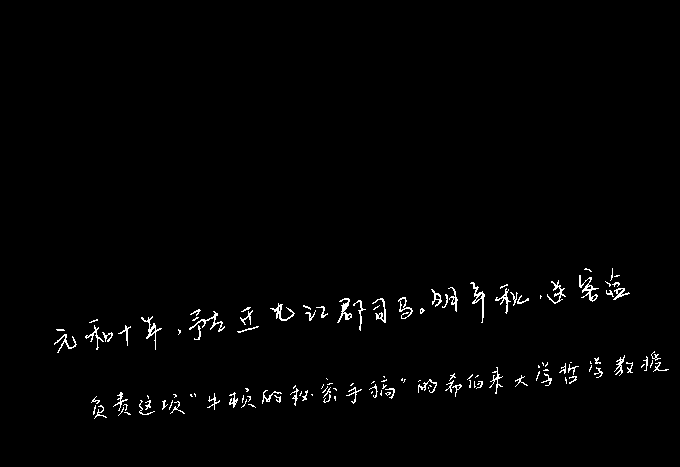 元和十年，予左迁九江郡司马。明年秋，送客湓
负责这项“牛顿的秘密手稿”的希伯来大学哲学教授